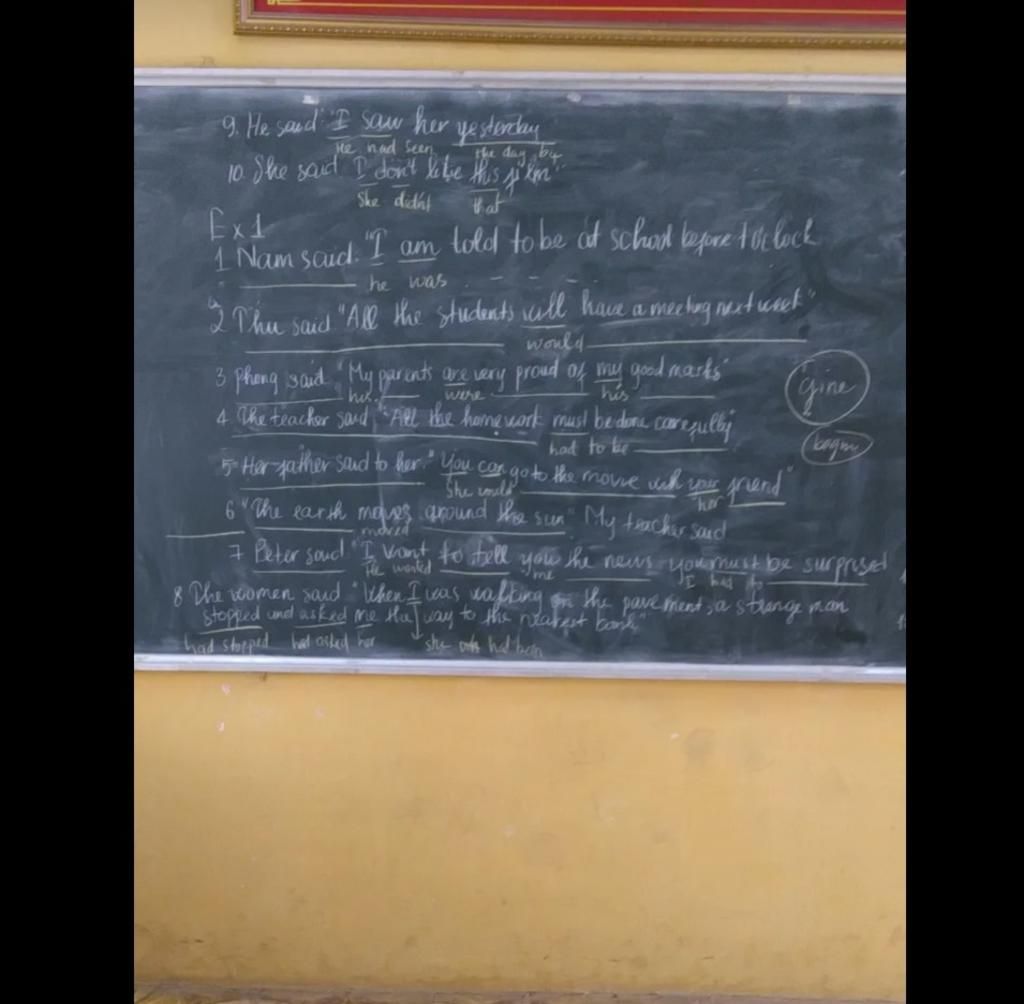 9. He said "I saw her yesterday
He had seen the day by
10. She said I don't like this film"
She didn't that
Ex1
1 Nam said. "I am told to be at school before 7 o'clock
he was
2 Thu said "All the students will have a meeting next week"
would
3 Phong said "My parents are very proud of my good marks"
his were his
4 The teacher said "All the homework must be done carefully"
had to be
5 Her father said to her. "You can go to the movie with your friend"
She could her
6 "The earth moves around the sun" My teacher said
moved
7 Peter said "I want to tell you the news you must be surprised
He wanted me I had to
8 The women said "When I was walking on the pavement, a strange man
stopped and asked me the way to the nearest bank"
had stopped had asked her she had been